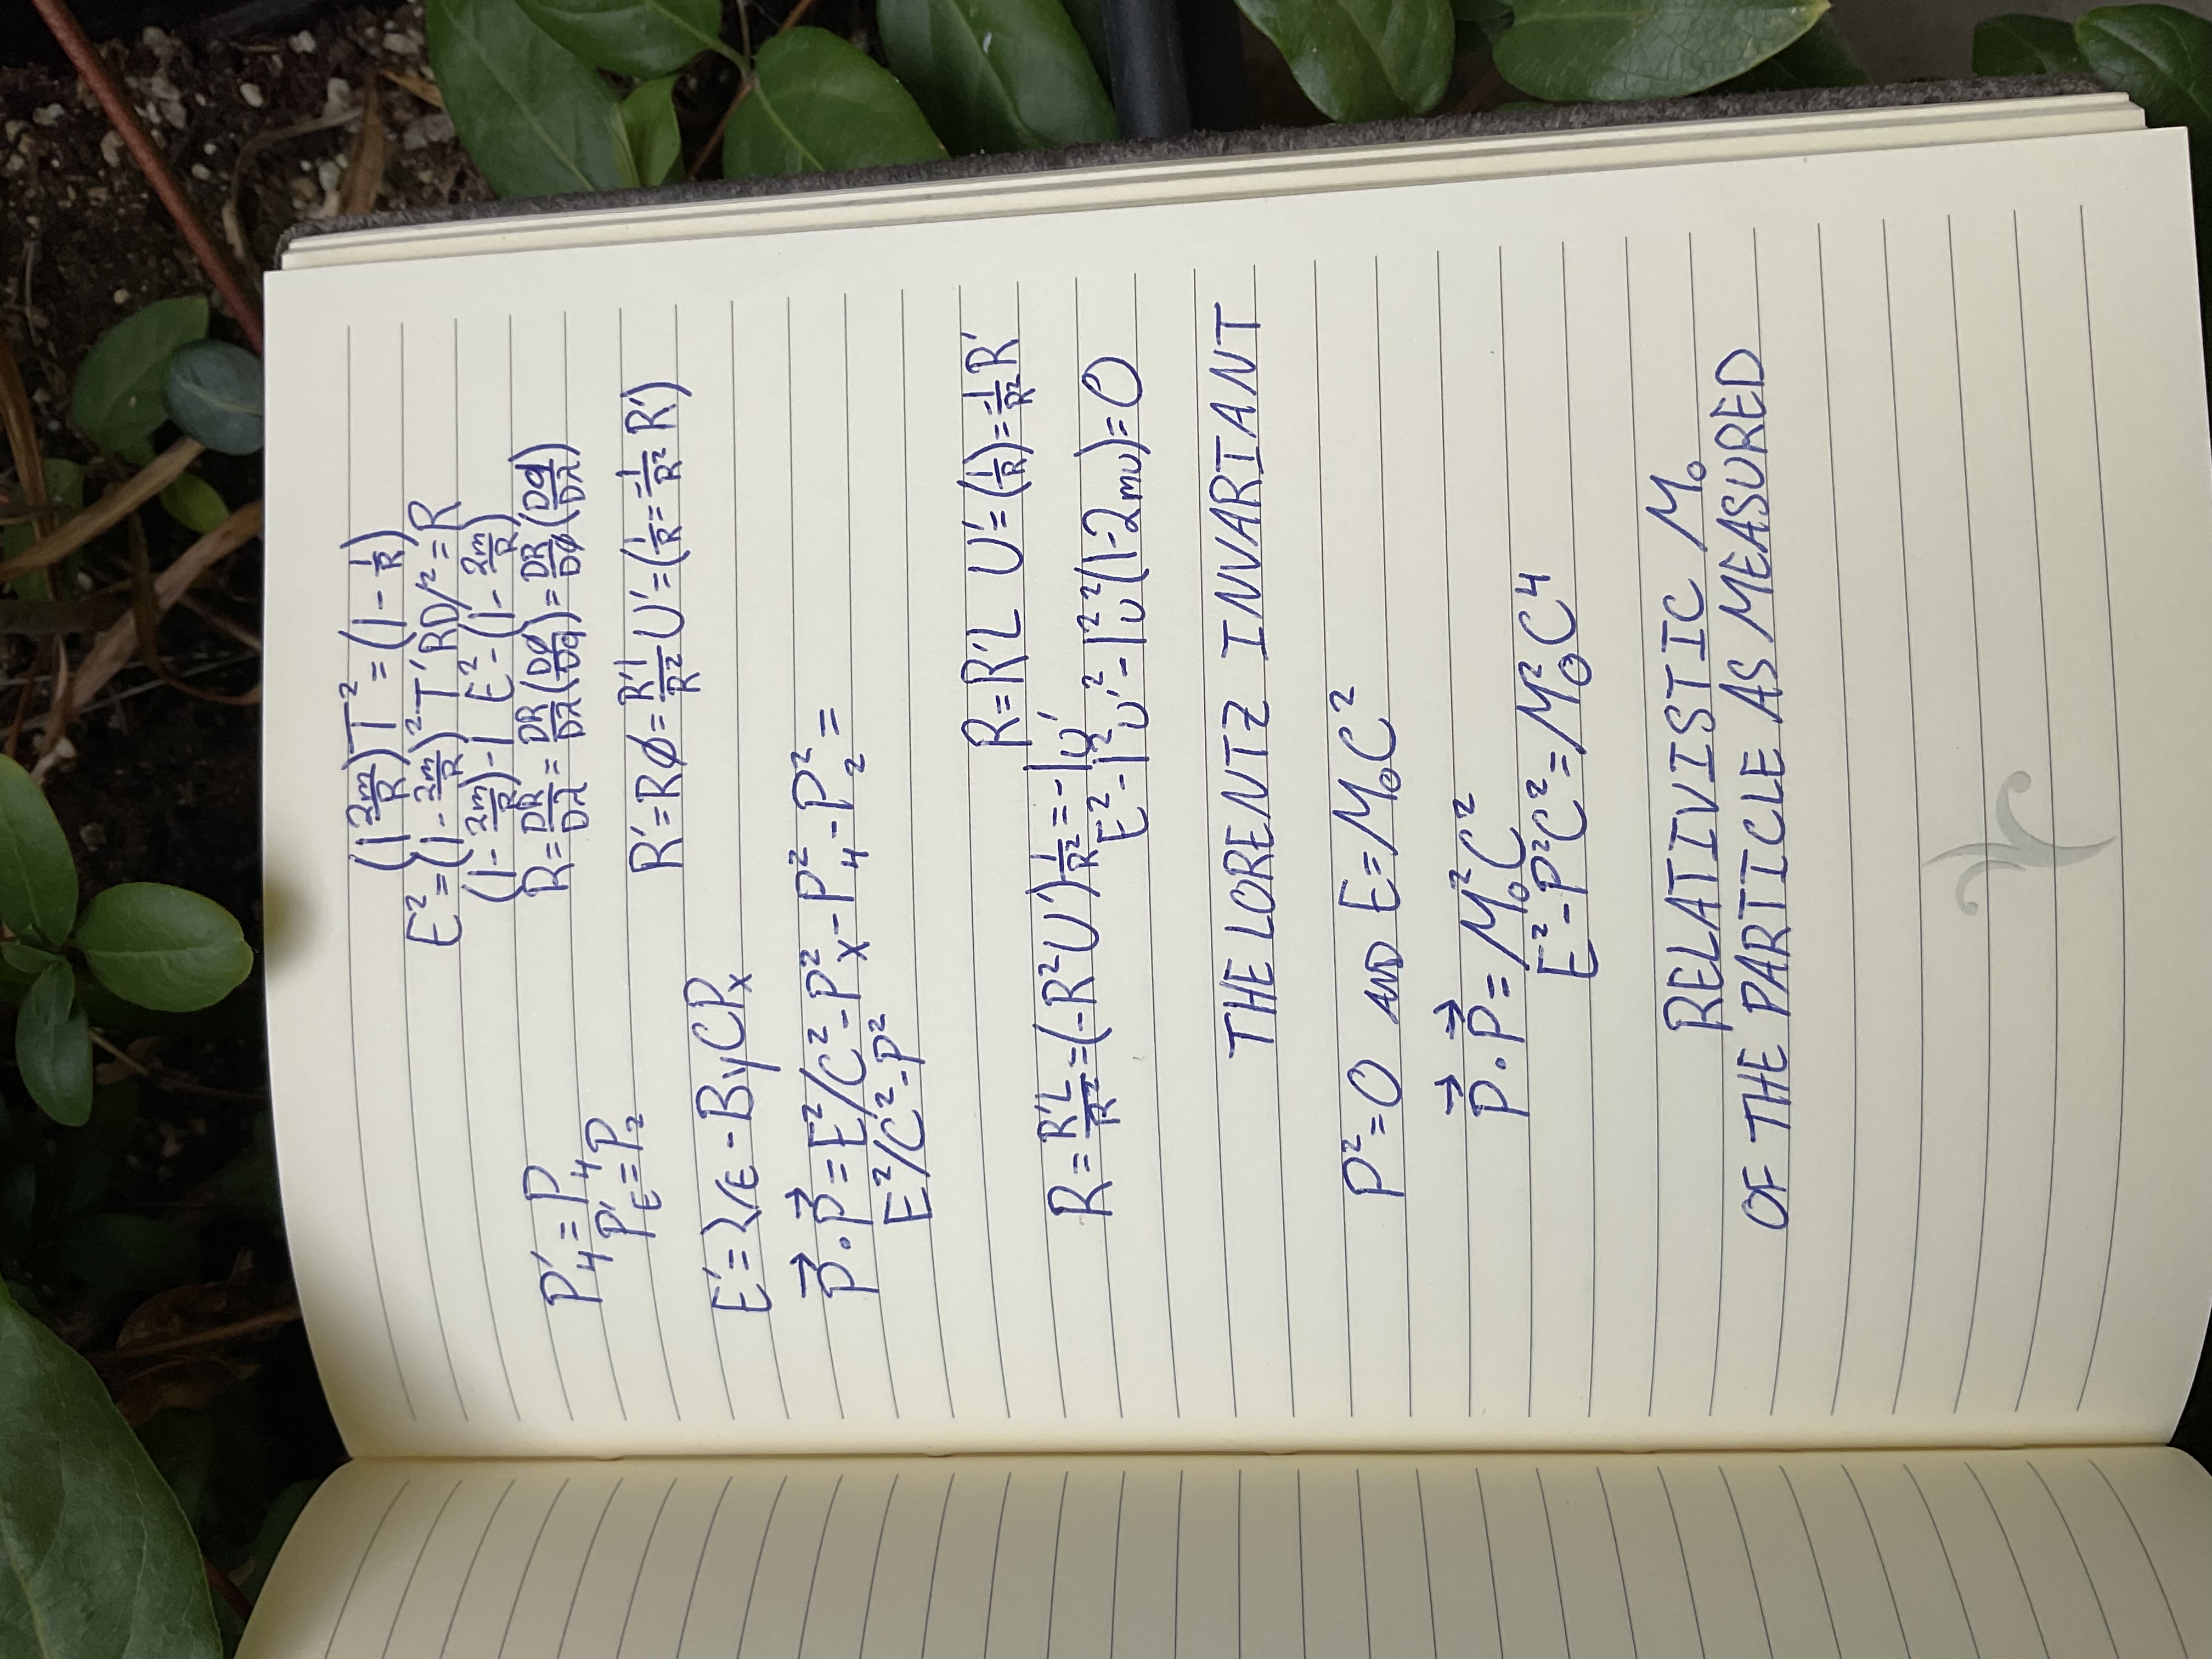 (1 2m/R)T² = (1 - 1/R)
E² = (1 - 2m/R)² T′RD/² = R
(1 - 2m/R) - 1 E² - (1 - 2m/R)
P′₄ = P₄
R = DR/Dλ = DR/Dλ (Dø/Dq) = DR/Dø (Dq/Dλ)
P′E = P₂
R′ = Rø = R′1/R² U′ = (1/R = -1/R² R′)
E′ = - ByCPₓ
P⃗ · P⃗ = E²/C² - Pₓ² - P₄² - P₂² =
E²/C² - P²
R = R′L U′ = (1/R) = -1/R² R′
R = R′L/R² = (-R²U′) 1/R² = -1u′
E² - 1²u′² - 1²u²(1 - 2mu) = 0
THE LORENTZ INVARIANT
P² = 0 AND E = M₀C²
P⃗ · P⃗ = M₀²C²
E² - P²C² = M₀²C⁴
RELATIVISTIC M₀
OF THE PARTICLE AS MEASURED